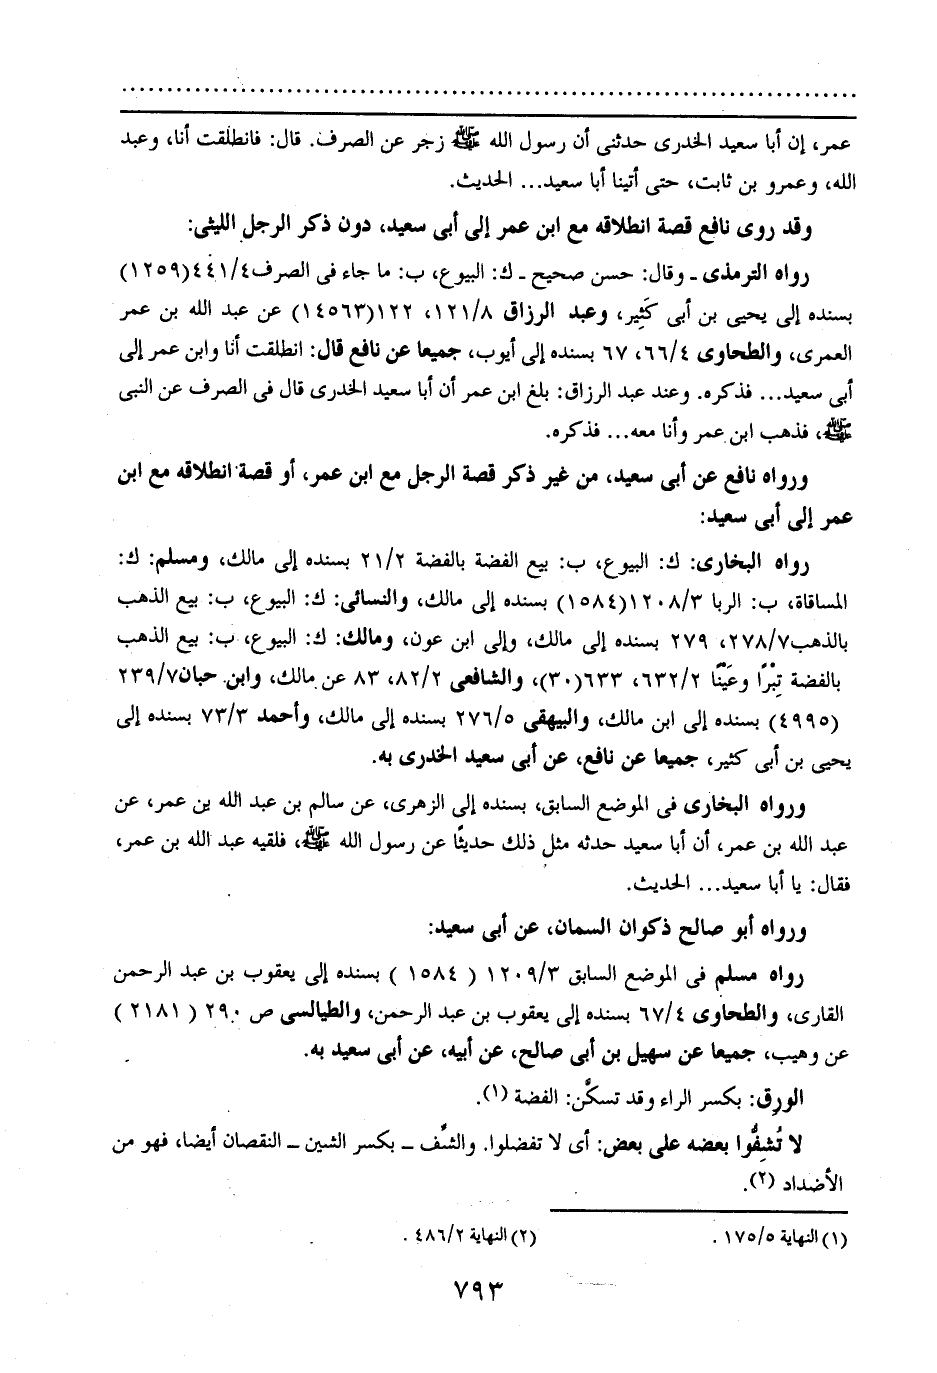 عمر، إن أبا سعيد الخدرى حدثنى أن رسول الله ﷺ زجر عن الصرف. قال: فانطلقت أنا، وعبد
الله، وعمرو بن ثابت، حتى أتينا أبا سعيد... الحديث.
وقد روى نافع قصة انطلاقه مع ابن عمر إلى أبى سعيد، دون ذكر الرجل الليثى:
رواه الترمذى ـ وقال: حسن صحيح ـ ك: البيوع، ب: ما جاء فى الصرف٤٤١/٤(١٢٥٩)
بسنده إلى يحيى بن أبى كَثِير، وعبد الرزاق ١٢١/٨، ١٢٢(١٤٥٦٣) عن عبد الله بن عمر
العمرى، والطحاوى ٦٦/٤، ٦٧ بسنده إلى أيوب، جميعا عن نافع قال: انطلقت أنا وابن عمر إلى
أبى سعيد... فذكره. وعند عبد الرزاق: بلغ ابن عمر أن أبا سعيد الخدرى قال فى الصرف عن النبى
ﷺ، فذهب ابن عمر وأنا معه... فذكره.
ورواه نافع عن أبى سعيد، من غير ذكر قصة الرجل مع ابن عمر، أو قصة انطلاقه مع ابن
عمر إلى أبى سعيد:
رواه البخارى: ك: البيوع، ب: بيع الفضة بالفضة ٢١/٢ بسنده إلى مالك، ومسلم: ك:
المساقاة، ب: الربا ١٢٠٨/٣(١٥٨٤) بسنده إلى مالك، والنسائى: ك: البيوع، ب: بيع الذهب
بالذهب٢٧٨/٧، ٢٧٩ بسنده إلى مالك، وإلى ابن عون، ومالك: ك: البيوع، ب: بيع الذهب
بالفضة تِبْرًا وعَيْنًا ٦٣٢/٢، ٦٣٣(٣٠)، والشافعى ٨٢/٢، ٨٣ عن مالك، وابن حبان٢٣٩/٧
(٤٩٩٥) بسنده إلى ابن مالك، والبيهقى ٢٧٦/٥ بسنده إلى مالك، وأحمد ٧٣/٣ بسنده إلى
يحيى بن أبى كثير، جميعا عن نافع، عن أبى سعيد الخدرى به.
ورواه البخارى فى الموضع السابق، بسنده إلى الزهرى، عن سالم بن عبد الله بن عمر، عن
عبد الله بن عمر، أن أبا سعيد حدثه مثل ذلك حديثًا عن رسول الله ﷺ، فلقيه عبد الله بن عمر،
فقال: يا أبا سعيد... الحديث.
ورواه أبو صالح ذكوان السمان، عن أبى سعيد:
رواه مسلم فى الموضع السابق ١٢٠٩/٣ ( ١٥٨٤ ) بسنده إلى يعقوب بن عبد الرحمن
القارى، والطحاوى ٦٧/٤ بسنده إلى يعقوب بن عبد الرحمن، والطيالسى ص ٢٩٠ ( ٢١٨١ )
عن وهيب، جميعا عن سهيل بن أبى صالح، عن أبيه، عن أبى سعيد به.
الورِق: بكسر الراء وقد تسكَّن: الفضة (١).
لا تُشِفُّوا بعضه على بعض: أى لا تفضلوا. والشِّف ـ بكسر الشين ـ النقصان أيضا، فهو من
الأضداد (٢).
(١) النهاية ١٧٥/٥ . (٢) النهاية ٤٨٦/٢ .
٧٩٣